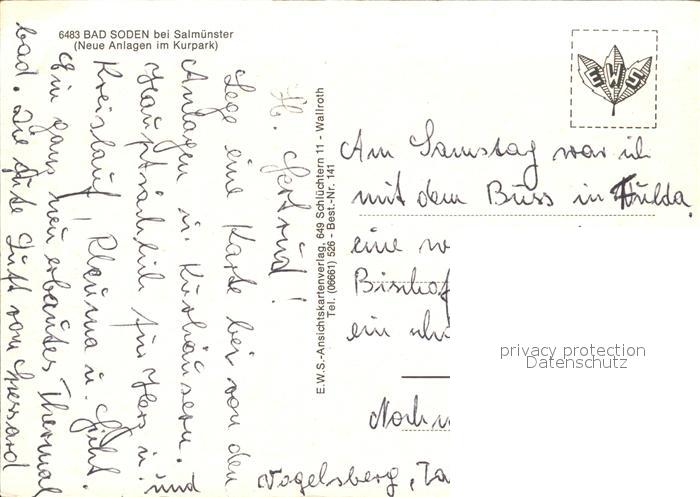 6483 BAD SODEN bei Salmünster
(Neue Anlagen im Kurpark)
EWS
Am Samstag war ich
mit dem Buss in Fulda.
eine
Bischof
ein
Noch
Vogelsberg, Ta
E.W.S.-Ansichtskartenverlag, 649 Schlüchtern 11 - Wallroth
Tel. (06661) 526 - Best.-Nr. 141
Hl. Gertrud!
Lege eine Karte bei von den
Anlagen u. Kurhäusern.
Hauptsächlich für Herz u. und
Kreislauf, Rheuma u. Gicht.
Ein ganz neu erbautes Thermal
bad. Die gute Luft vom Spessard
privacy protection
Datenschutz